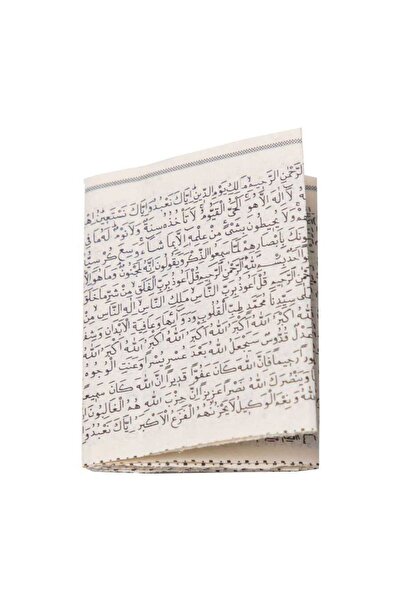 الرَّحْمٰنِ الرَّحِيمِ مٰلِكِ يَوْمِ الدِّينِ اِيَّاكَ نَعْبُدُ وَاِيَّاكَ نَسْتَعِينُ
لَا اِلٰهَ اِلَّا هُوَ الْحَيُّ الْقَيُّومُ لَا تَأْخُذُهُ سِنَةٌ وَلَا نَوْمٌ لَهُ مَا فِي
وَلَا يُحِيطُونَ بِشَيْءٍ مِنْ عِلْمِهِ اِلَّا بِمَا شَاءَ وَسِعَ كُرْسِيُّهُ
بِاَبْصَارِهِمْ لَمَّا سَمِعُوا الذِّكْرَ وَيَقُولُونَ اِنَّهُ لَمَجْنُونٌ وَمَا هُوَ اِلَّا
الرَّحْمٰنِ الرَّحِيمِ قُلْ اَعُوذُ بِرَبِّ الْفَلَقِ مِنْ شَرِّ مَا خَلَقَ
قُلْ اَعُوذُ بِرَبِّ النَّاسِ مَلِكِ النَّاسِ اِلٰهِ النَّاسِ مِنْ
سَيِّدِنَا مُحَمَّدٍ طِبِّ الْقُلُوبِ وَدَوَائِهَا وَعَافِيَةِ الْاَبْدَانِ وَشِفَائِهَا
اَللّٰهُ اَكْبَرُ اَللّٰهُ اَكْبَرُ اَللّٰهُ اَكْبَرُ اَللّٰهُ اَكْبَرُ
قُدُّوسٌ سَيَجْعَلُ اللّٰهُ بَعْدَ عُسْرٍ يُسْرًا وَعَنَتِ الْوُجُوهُ
فَاِنَّ اللّٰهَ كَانَ عَفُوًّا قَدِيرًا اِنَّ اللّٰهَ كَانَ سَمِيعًا
وَيَنْصُرَكَ اللّٰهُ نَصْرًا عَزِيزًا اِنَّ حِزْبَ اللّٰهِ هُمُ الْغَالِبُونَ
وَنِعْمَ الْوَكِيلُ لَا يَحْزُنُهُمُ الْفَزَعُ الْاَكْبَرُ اِيَّاكَ نَعْبُدُ